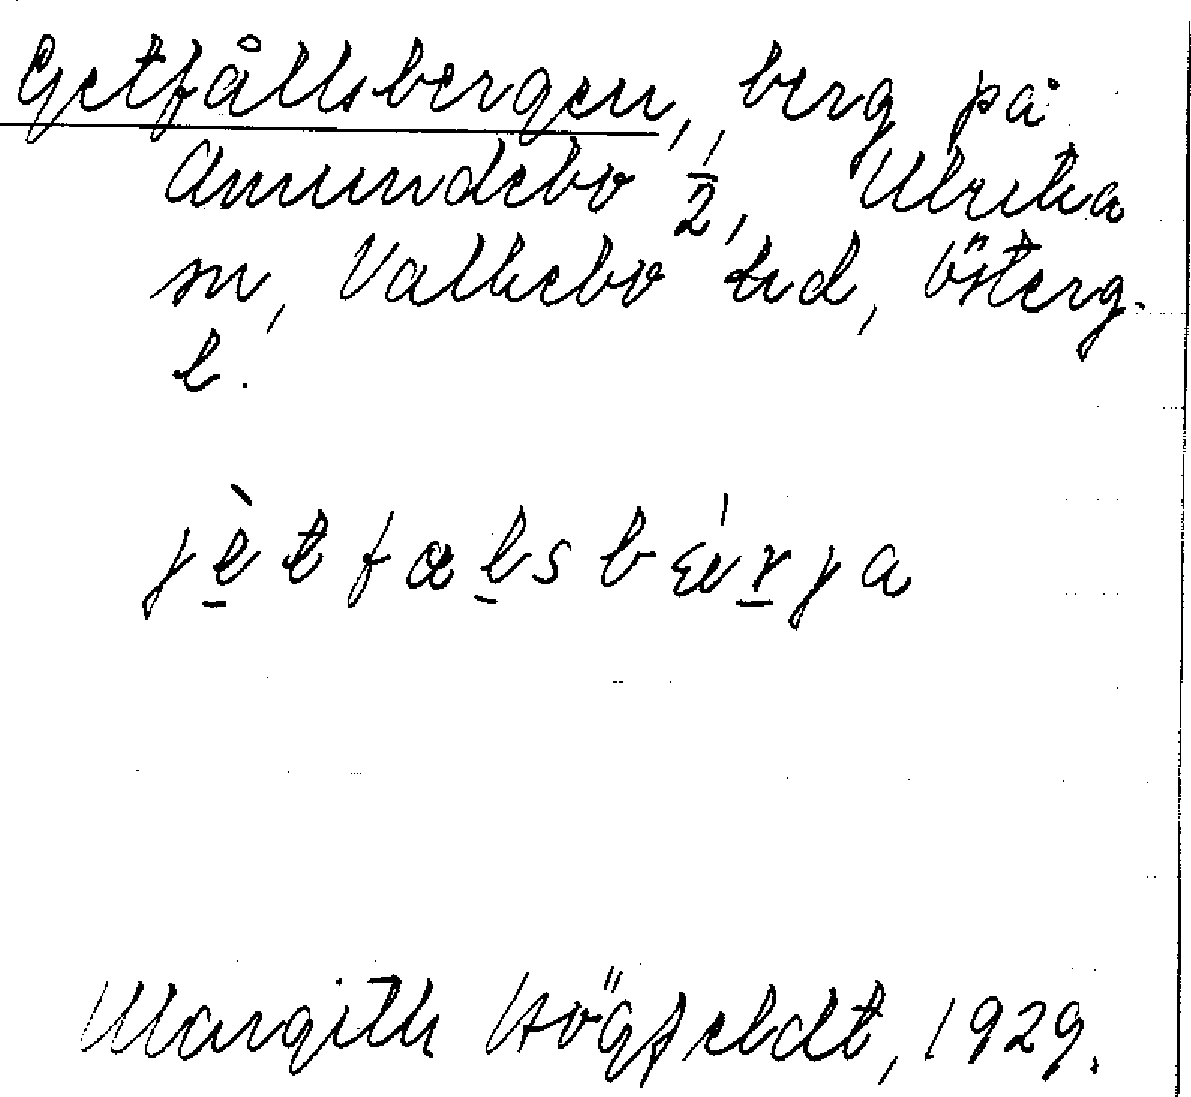 Getfållsbergen, berg på
Amundebo 1/2, Ulrika
sn, Valkebo hd, Österg.
l.
jètfalsbæ̀rja
Margith Högfeldt, 1929.